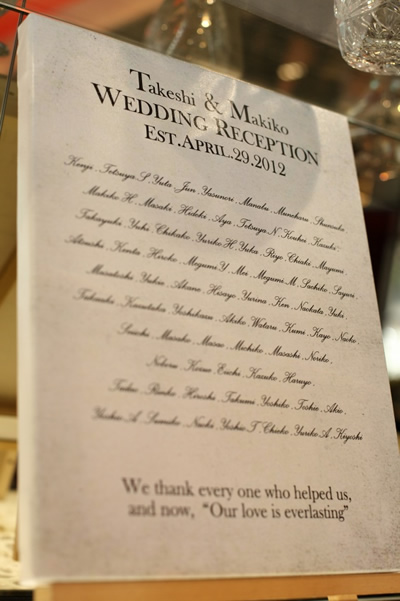 Takeshi & Makiko
WEDDING RECEPTION
EST.APRIL.29.2012
Kenji . Tetsuya.S . Yuta . Jun . Yasunori . Manabu . Munekazu . Shunsuke .
Makiko.H . Masaki . Hideki . Aya . Tetsuya.N . Kouhei . Kazuki .
Takayuki . Yuki . Chikako . Yuriko.H . Yuka . Ryo . Chiaki . Mayumi
Atsushi . Kenta . Hiroko . Megumi.Y . Mai . Megumi.M . Sachiko . Sayuri .
Masatoshi . Yukie . Akane . Hisayo . Yurina . Ken . Naotaka . Yuki .
Takeaki . Kazutaka . Yoshikazu . Akiko . Wataru . Kumi . Kayo . Naoko .
Seiichi . Masako . Masao . Michiko . Masashi . Noriko .
Noboru . Kazue . Eiichi . Kazuko . Haruyo .
Tadao . Reiko . Hiroshi . Takumi . Yoshiko . Toshie . Akio .
Yoshio.A . Sumiko . Naoki . Yoshio.T . Chieko . Yuriko.A . Kiyoshi
We thank every one who helped us,
and now, "Our love is everlasting"